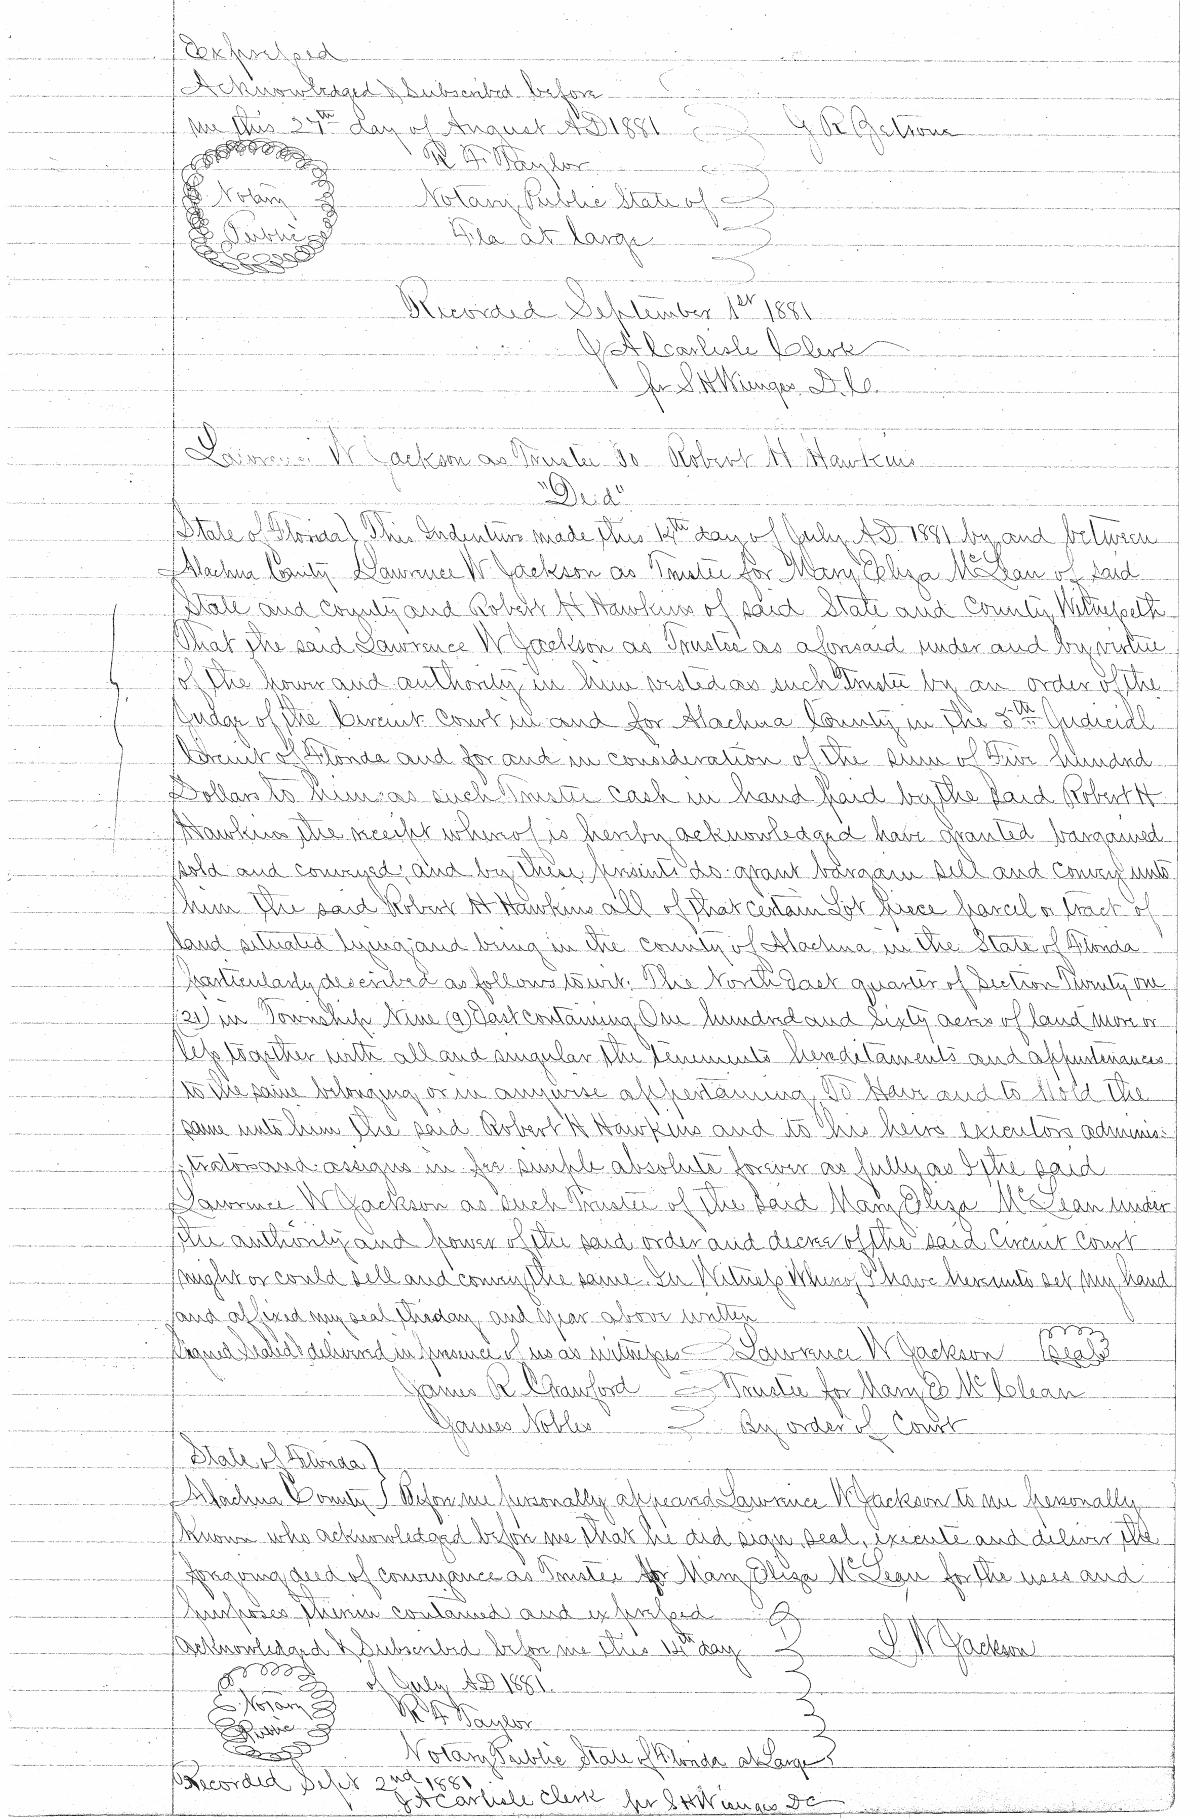 Expressed
Acknowledged & Subscribed before
me this 27th day of August AD 1881 G R
R F Taylor
Notary Public State of
Fla at large
Notary
Public
Recorded September 1st 1881
J A Carlisle Clerk
per S H Wienges D.C.
Lawrence W Jackson as Trustee To Robert H Hawkins
"Deed"
State of Florida } This Indenture made this 14th day of July AD 1881 by and between
Alachua County Lawrence W Jackson as Trustee for Mary Eliza McLean of said
State and county and Robert H Hawkins of said State and County Witnesseth
That the said Lawrence W Jackson as Trustee as aforesaid under and by virtue
of the power and authority in him vested as such Trustee by an order of the
Judge of the Circuit Court in and for Alachua County in the 5th Judicial
Circuit of Florida and for and in consideration of the sum of Five hundred
Dollars to him as such Trustee cash in hand paid by the said Robert H
Hawkins the receipt whereof is hereby acknowledged have granted bargained
sold and conveyed, and by these presents do grant bargain sell and convey unto
him the said Robert H Hawkins all of that certain Lot piece parcel or tract of
land situated lying and being in the county of Alachua in the State of Florida
particularly described as follows towit. The North East quarter of Section Twenty one
(21) in Township Nine (9) East containing One hundred and Sixty acres of land more or
less together with all and singular the tenements hereditaments and appurtenances
to the same belonging or in anywise appertaining, To Have and to Hold the
same unto him the said Robert H Hawkins and to his heirs executors adminis-
trators and assigns in fee simple absolute forever as fully as I the said
Lawrence W Jackson as such Trustee of the said Mary Eliza McLean under
the authority and power of the said order and decree of the said Circuit Court
might or could sell and convey the same. In Witness Whereof I have hereunto set my hand
and affixed my seal the day and year above written
Signed Sealed & delivered in presence of us as witnesses Lawrence W Jackson Seal
James R Crawford Trustee for Mary E McClean
James Nobles By order of Court
State of Florida }
Alachua County } Before me personally appeared Lawrence W Jackson to me personally
known who acknowledged before me that he did sign, seal, execute and deliver the
foregoing deed of conveyance as Trustee for Mary Eliza McLean for the uses and
purposes therein contained and expressed
Acknowledged & Subscribed before me this 14th day L W Jackson
of July AD 1881.
Notary
Public
R F Taylor
Notary Public State of Florida at Large
Recorded Sept 2nd 1881
J A Carlisle Clerk per S H Wienges DC